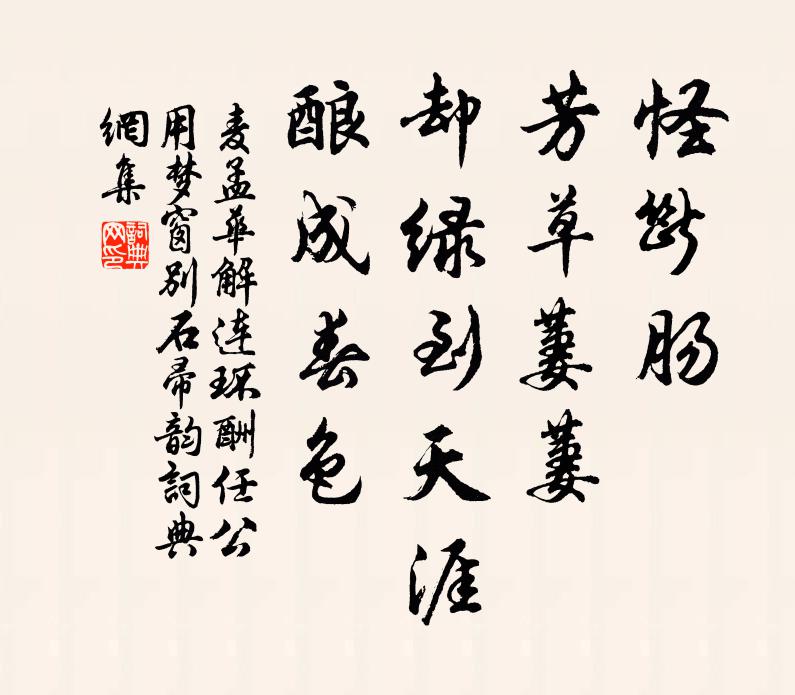 怪断肠
芳草萋萋
却绿到天涯
酿成春色
麦孟华解连环酬任公
用梦窗别石帚韵词典
網集
詞典
网印